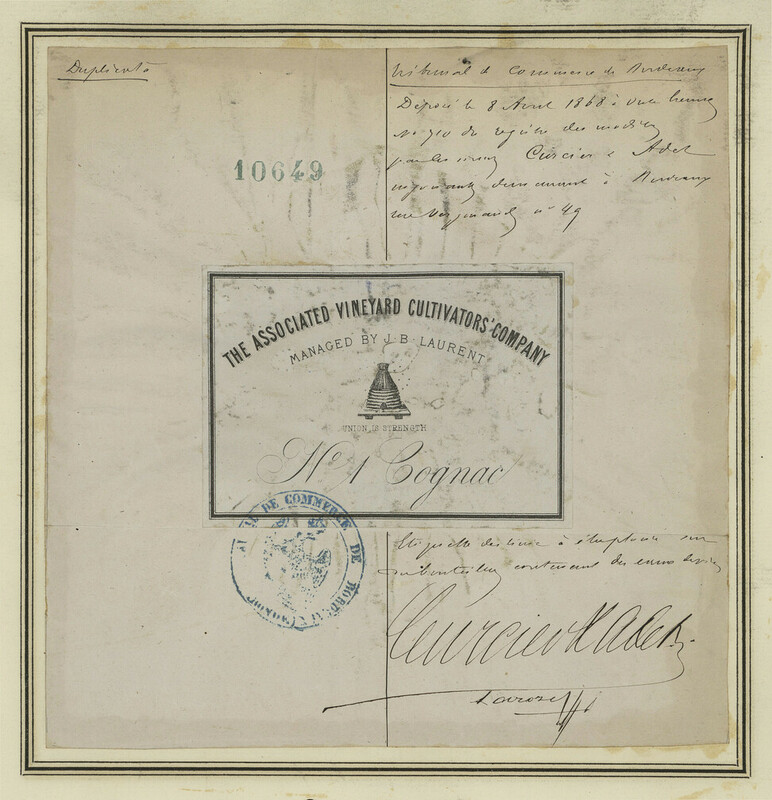 Duplicata
Tribunal de Commerce de Bordeaux
Déposé le 8 Avril 1868 à onze heures
No 710 du registre des modèles
par les sieurs Curcier & Adet
négociants demeurant à Bordeaux
rue nº 49
10649
THE ASSOCIATED VINEYARD CULTIVATORS' COMPANY
MANAGED BY J. B. LAURENT
UNION IS STRENGTH
No 1 Cognac
DE COMMERCE DE BORDEAUX (GIRONDE)
Etiquette destinée à être sur
bouteilles contenant des
Curcier & Adet